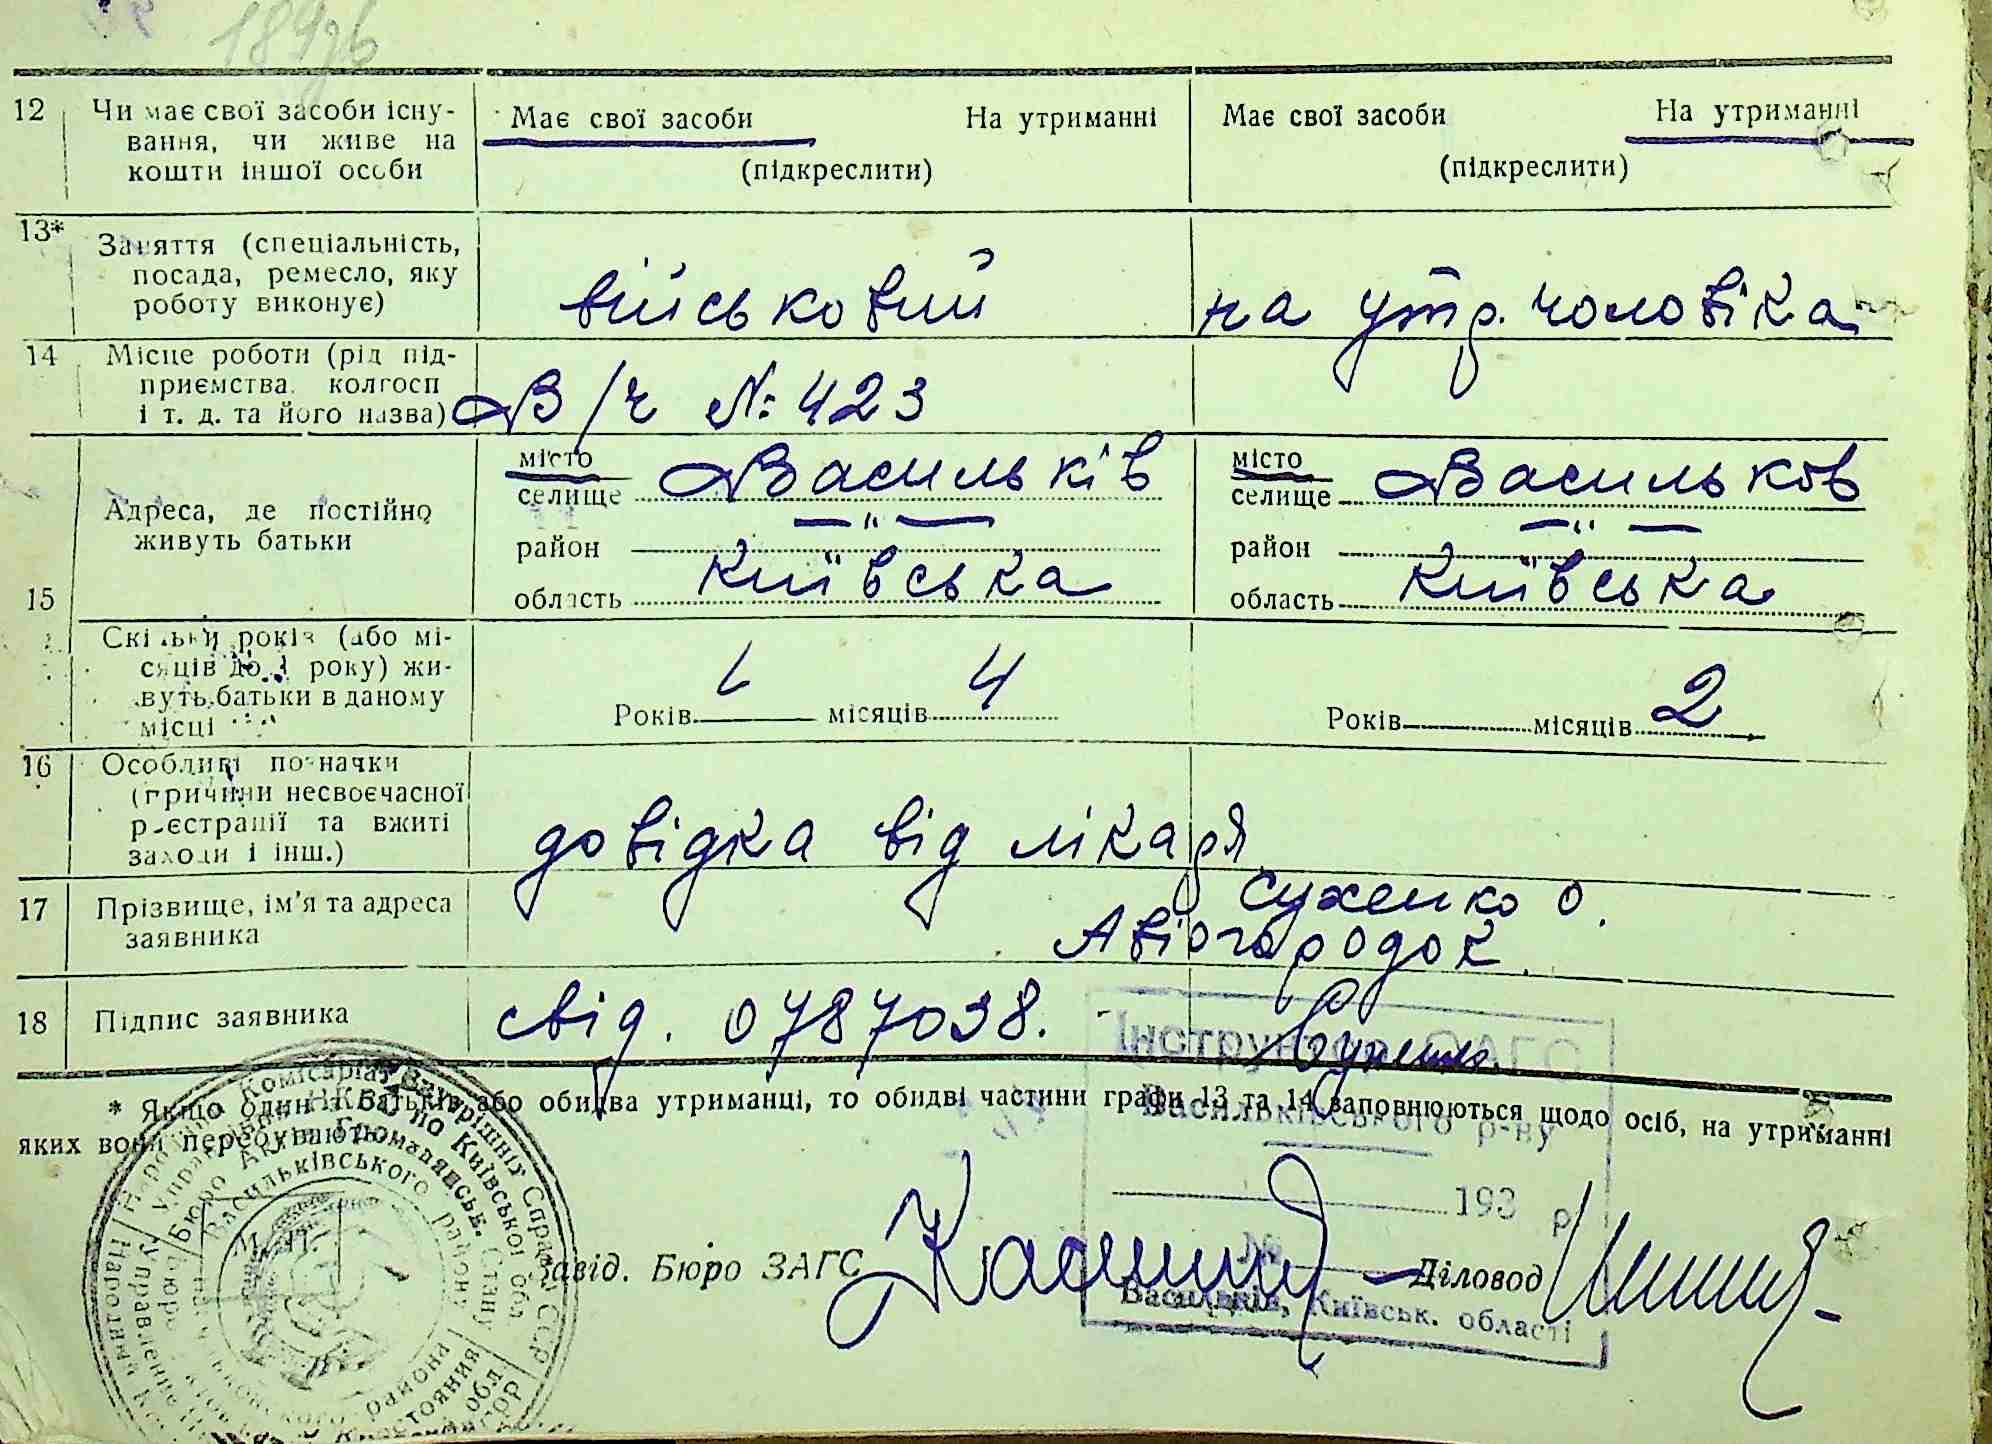 12 Чи має свої засоби існу- Має свої засоби На утриманні Має свої засоби На утриманні
вання, чи живе на
кошти іншої особи (підкреслити) (підкреслити)
13* Заняття (спеціальність,
посада, ремесло, яку
роботу виконує) військовий на утр. чоловіка
14 Місце роботи (рід під-
приємства, колгосп
і т. д. та його назва) В/ч №: 423
місто Васильків місто Васильков
селище селище
15 Адреса, де постійно
живуть батьки район — " — район — " —
область Київська область Київська
Скільки років (або мі-
сяців до 1 року) жи-
вуть батьки в даному
місці Років місяців 4 Років місяців 2
16 Особливі позначки
(причини несвоєчасної
реєстрації та вжиті
заходи і інш.) довідка від лікаря
17 Прізвище, ім'я та адреса
заявника Сухенко О.
Авіогородок.
18 Підпис заявника свід. 0787038.
Інструктор ЗАГС
* Якщо один із батьків або обидва утриманці, то обидві частини графи 13 та 14 заповнюються щодо осіб, на утриманні
яких вони перебувають.
Васильківського р-ну
193 р
№
Завід. Бюро ЗАГС Діловод
Васильків, Київськ. області
Народний Комісаріат Внутрішніх Справ УССР
Управління НКВС на Київській обл
Бюро Актів Громадянськ. Стану
Васильківського району
М. П.